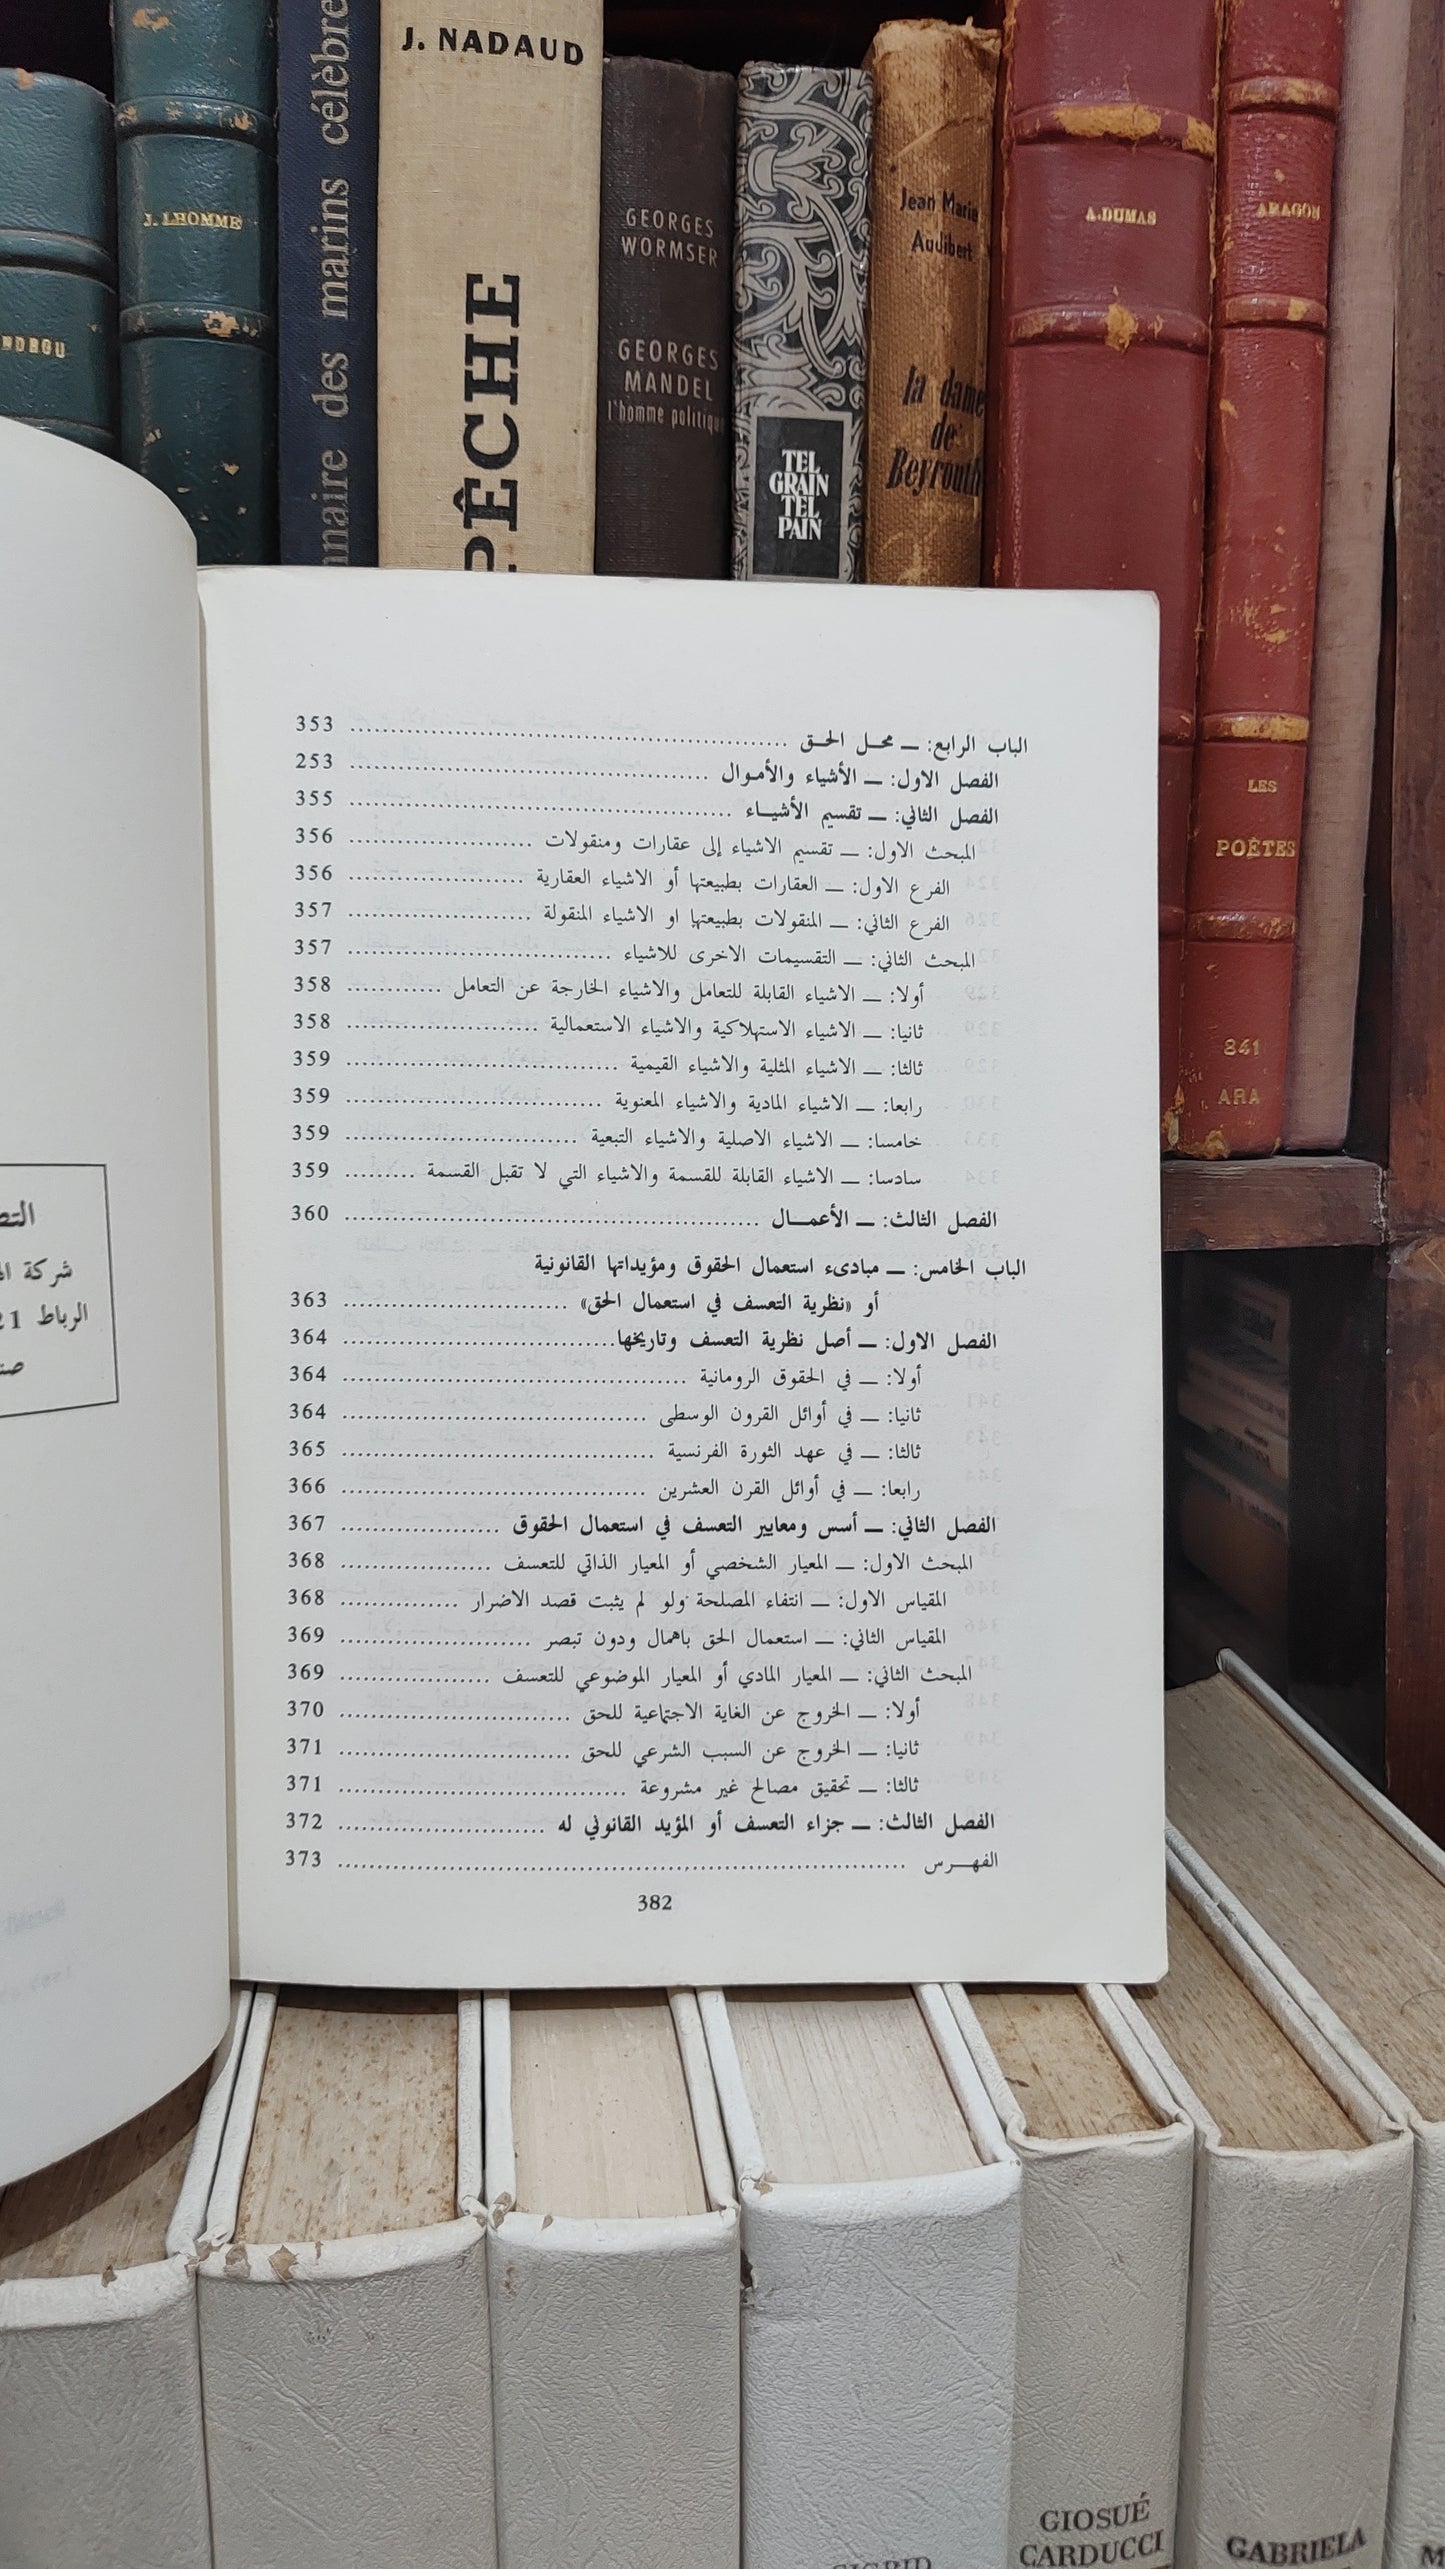 J. LHOMME
naire des marins célèbre
J. NADAUD
PÊCHE
GEORGES
WORMSER
GEORGES
MANDEL
l'homme politiqu
TEL
GRAIN
TEL
PAIN
Jean Marie
Audibert
la dame
de
Beyrouth
A.DUMAS
ARAGON
LES
POÈTES
841
ARA
الباب الرابع: ــ محـل الحـق ........ 353
الفصل الاول: ــ الأشياء والأمـوال ........ 253
الفصل الثاني: ــ تقسيم الأشيـاء ........ 355
المبحث الاول: ــ تقسيم الاشياء إلى عقارات ومنقولات ........ 356
الفرع الاول: ــ العقارات بطبيعتها أو الاشياء العقارية ........ 356
الفرع الثاني: ــ المنقولات بطبيعتها او الاشياء المنقولة ........ 357
المبحث الثاني: ــ التقسيمات الاخرى للاشياء ........ 357
أولا: ــ الاشياء القابلة للتعامل والاشياء الخارجة عن التعامل ........ 358
ثانيا: ــ الاشياء الاستهلاكية والاشياء الاستعمالية ........ 358
ثالثا: ــ الاشياء المثلية والاشياء القيمية ........ 359
رابعا: ــ الاشياء المادية والاشياء المعنوية ........ 359
خامسا: ــ الاشياء الاصلية والاشياء التبعية ........ 359
سادسا: ــ الاشياء القابلة للقسمة والاشياء التي لا تقبل القسمة ........ 359
الفصل الثالث: ــ الأعمـــال ........ 360
الباب الخامس: ــ مبادىء استعمال الحقوق ومؤيداتها القانونية
أو «نظرية التعسف في استعمال الحق» ........ 363
الفصل الاول: ــ أصل نظرية التعسف وتاريخها ........ 364
أولا: ــ في الحقوق الرومانية ........ 364
ثانيا: ــ في أوائل القرون الوسطى ........ 364
ثالثا: ــ في عهد الثورة الفرنسية ........ 365
رابعا: ــ في أوائل القرن العشرين ........ 366
الفصل الثاني: ــ أسس ومعايير التعسف في استعمال الحقوق ........ 367
المبحث الاول: ــ المعيار الشخصي أو المعيار الذاتي للتعسف ........ 368
المقياس الاول: ــ انتفاء المصلحة ولو لم يثبت قصد الاضرار ........ 368
المقياس الثاني: ــ استعمال الحق باهمال ودون تبصر ........ 369
المبحث الثاني: ــ المعيار المادي أو المعيار الموضوعي للتعسف ........ 369
أولا: ــ الخروج عن الغاية الاجتماعية للحق ........ 370
ثانيا: ــ الخروج عن السبب الشرعي للحق ........ 371
ثالثا: ــ تحقيق مصالح غير مشروعة ........ 371
الفصل الثالث: ــ جزاء التعسف أو المؤيد القانوني له ........ 372
الفهــرس ........ 373
382
شركة
الرباط 21
GIOSUÉ
CARDUCCI
GABRIELA